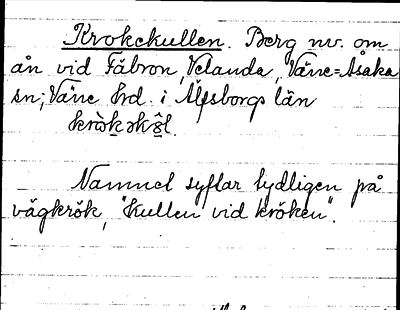 Krokekullen. Berg nv. om
ån vid Fåbron, Velanda, Väne=Åsaka
sn; Väne hrd. i Älfsborgs län
Namnet syftar tydligen på
vägkrök, "Kullen vid kröken".